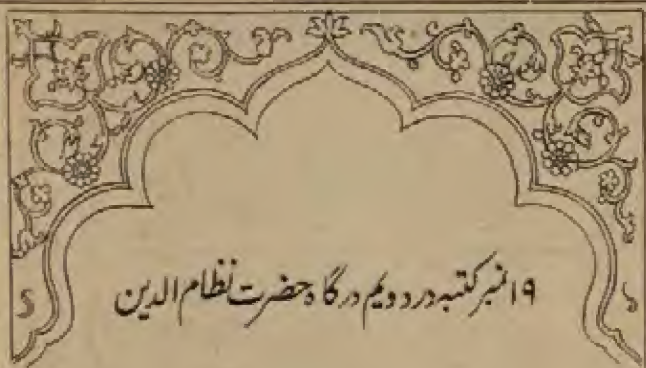 ۱۹ نمبر کتبہ در دویم درگاہ حضرت نظام الدین